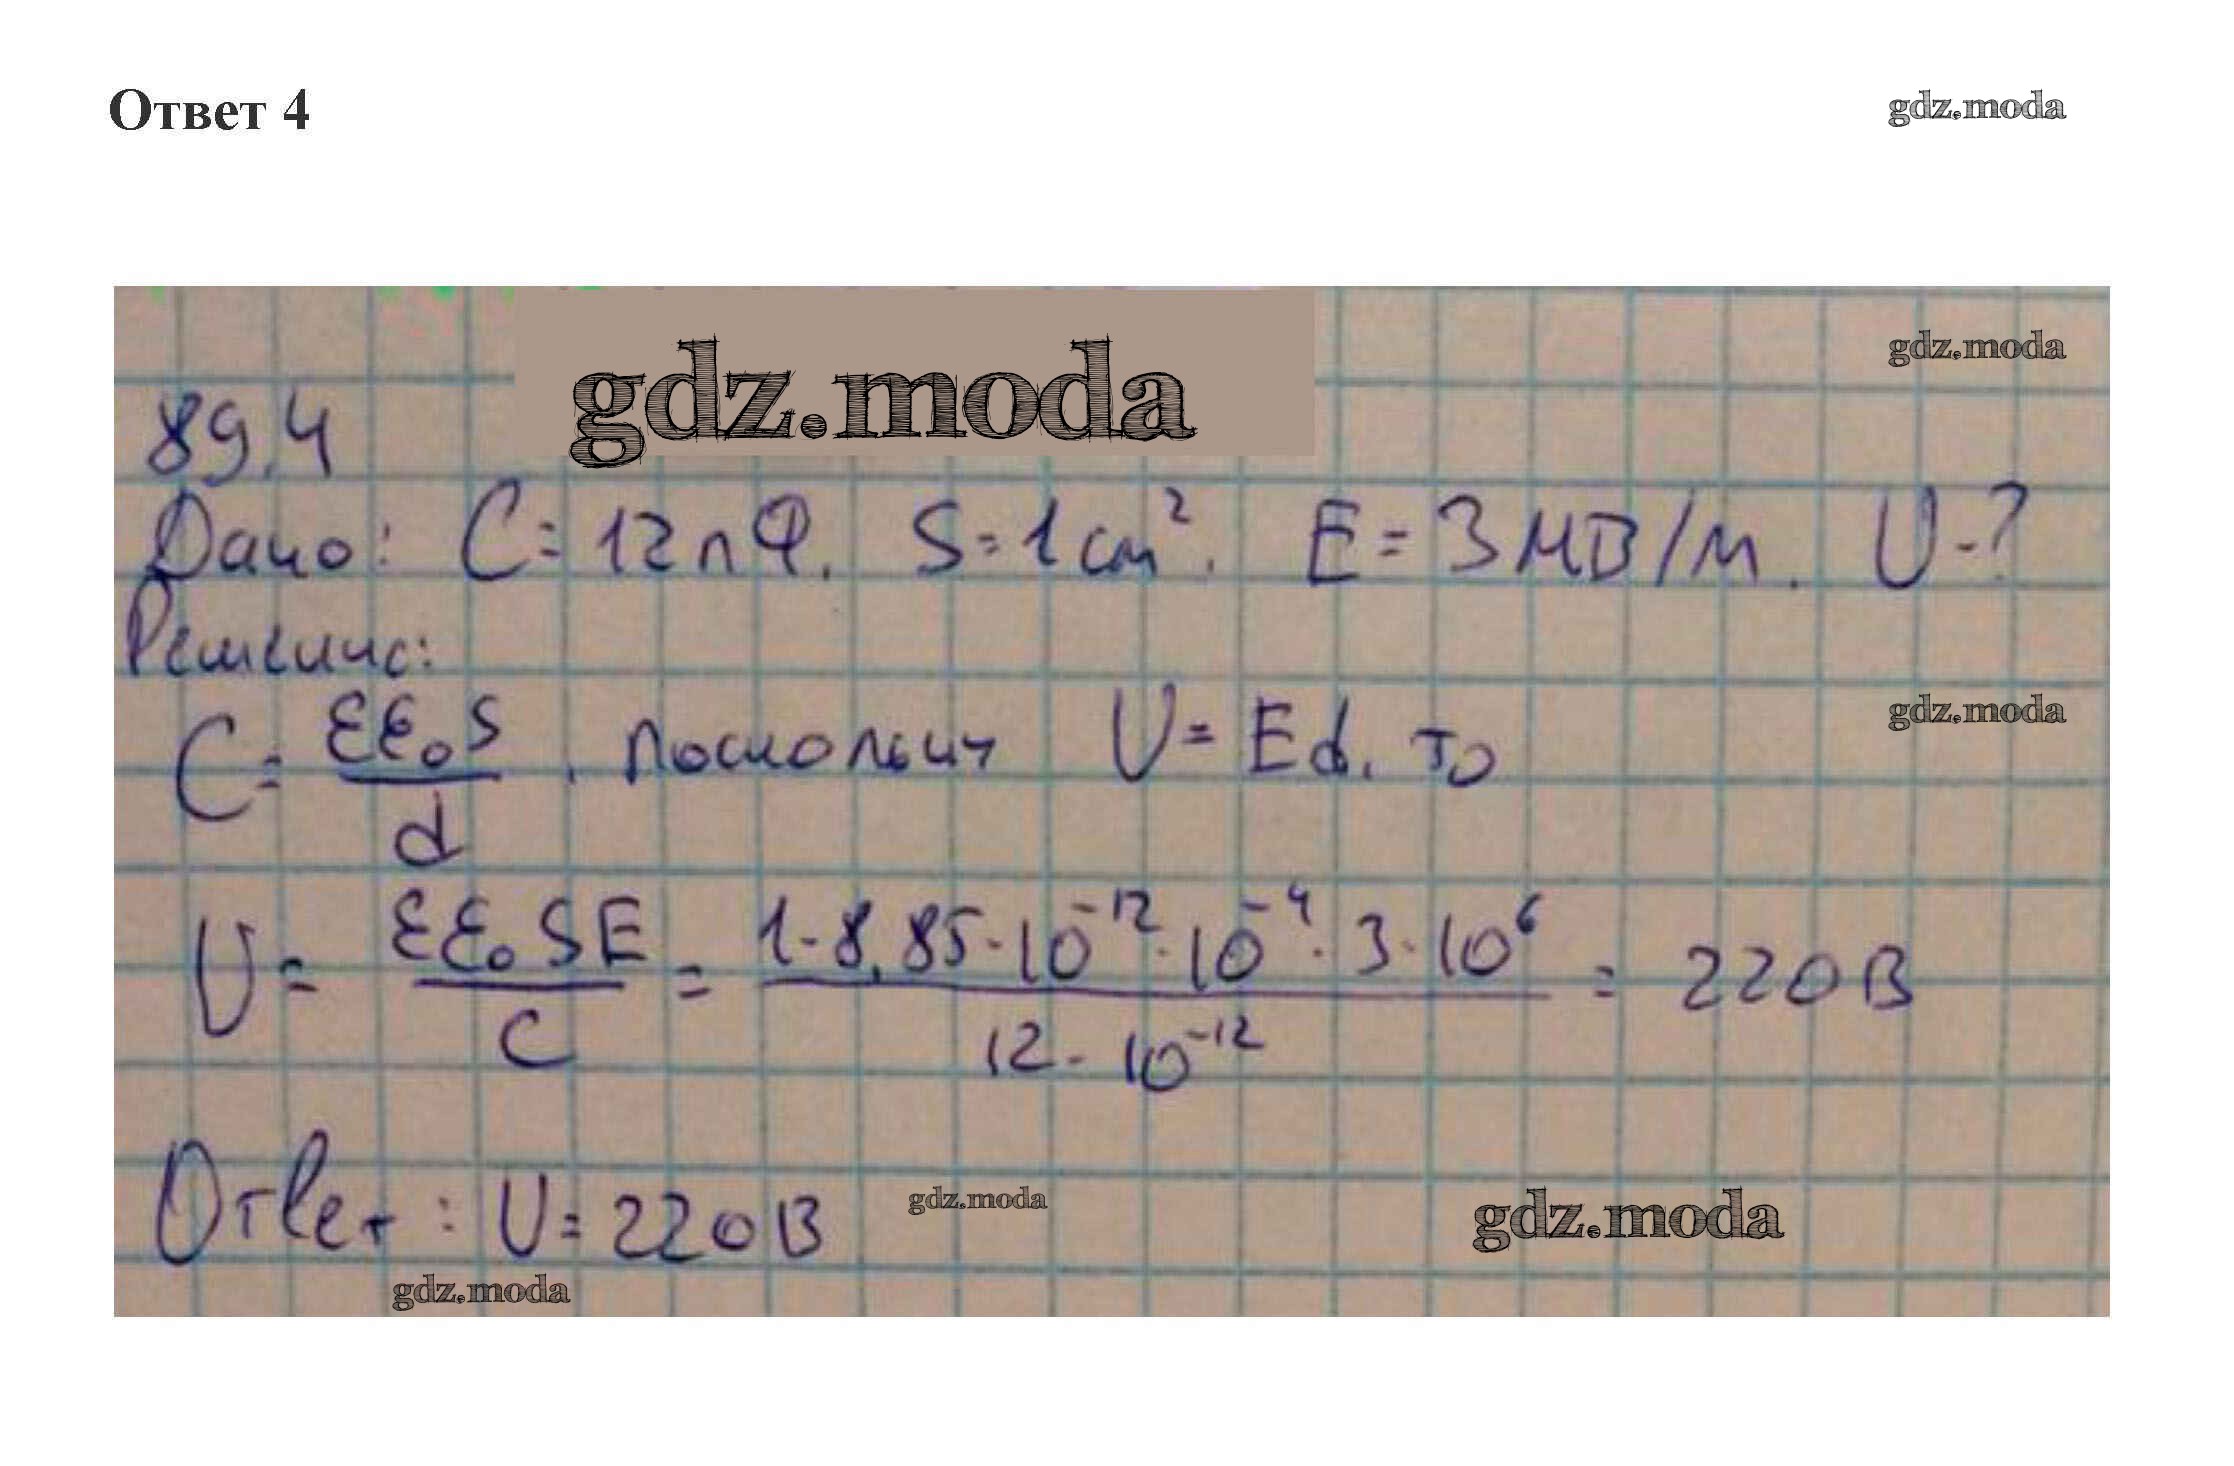 Ответ 4
gdz.moda
gdz.moda
gdz.moda
89.4
Дано: C = 12 пФ. S = 1 см². E = 3 МВ/м. U - ?
Решение:
C = εε₀S / d, поскольку U = Ed, то
gdz.moda
U = εε₀SE / C = 1·8,85·10⁻¹²·10⁻⁴·3·10⁶ / 12·10⁻¹² = 220 В
Ответ: U = 220 В
gdz.moda
gdz.moda
gdz.moda